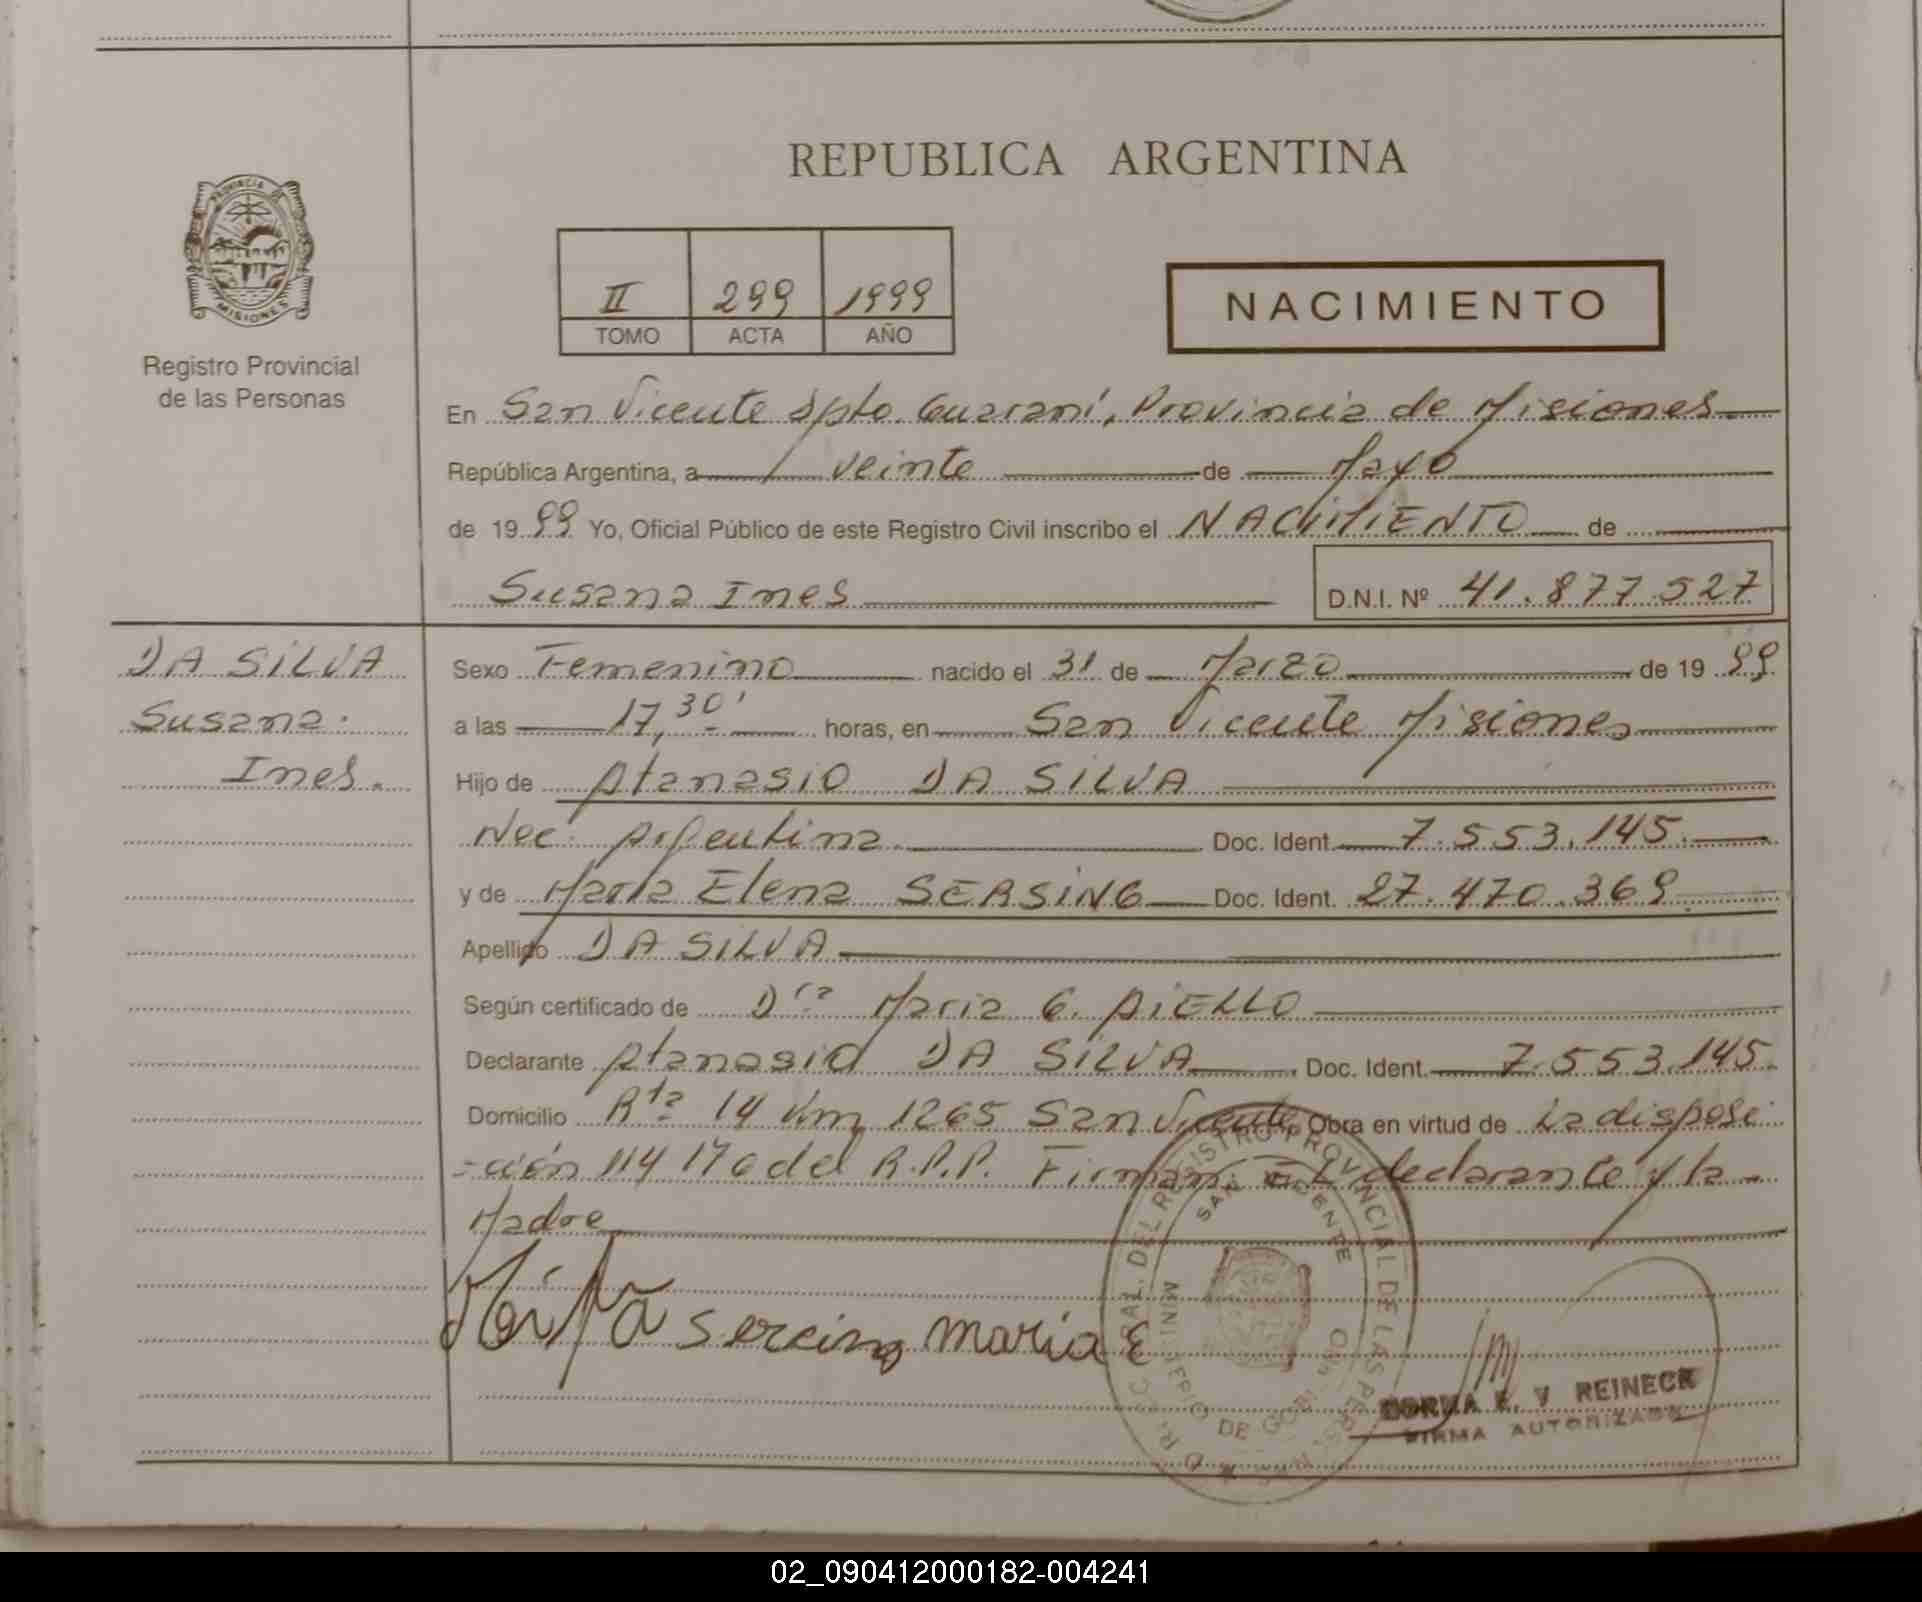 REPUBLICA ARGENTINA
PROVINCIA DE
MISIONES
Registro Provincial
de las Personas
II 299 1999
TOMO ACTA AÑO
NACIMIENTO
En San Vicente Dpto. Guaraní, Provincia de Misiones
República Argentina, a veinte de Mayo
de 1999 Yo, Oficial Público de este Registro Civil inscribo el NACIMIENTO de
Susana Ines D.N.I. Nº 41.877.527
DA SILVA
Susana
Ines.
Sexo Femenino nacido el 31 de Marzo de 1999
a las 17,30' horas, en San Vicente Misiones
Hijo de Atanasio DA SILVA
Nac. Argentina. Doc. Ident. 7.553.145.
y de María Elena SERSING Doc. Ident. 27.470.369
Apellido DA SILVA
Según certificado de Dra María G. AIELLO
Declarante Atanasio DA SILVA Doc. Ident. 7.553.145.
Domicilio Rta 14 Km 1265 San Vicente Obra en virtud de La disposi
-ción 114 del R.P.P. Firman El declarante y la
Madre
sercing maria E
REGISTRO PROVINCIAL DE LAS PERSONAS
SAN VICENTE
MINISTERIO DE GOBIERNO
NORMA E. V REINECK
FIRMA AUTORIZADA
02_090412000182-004241